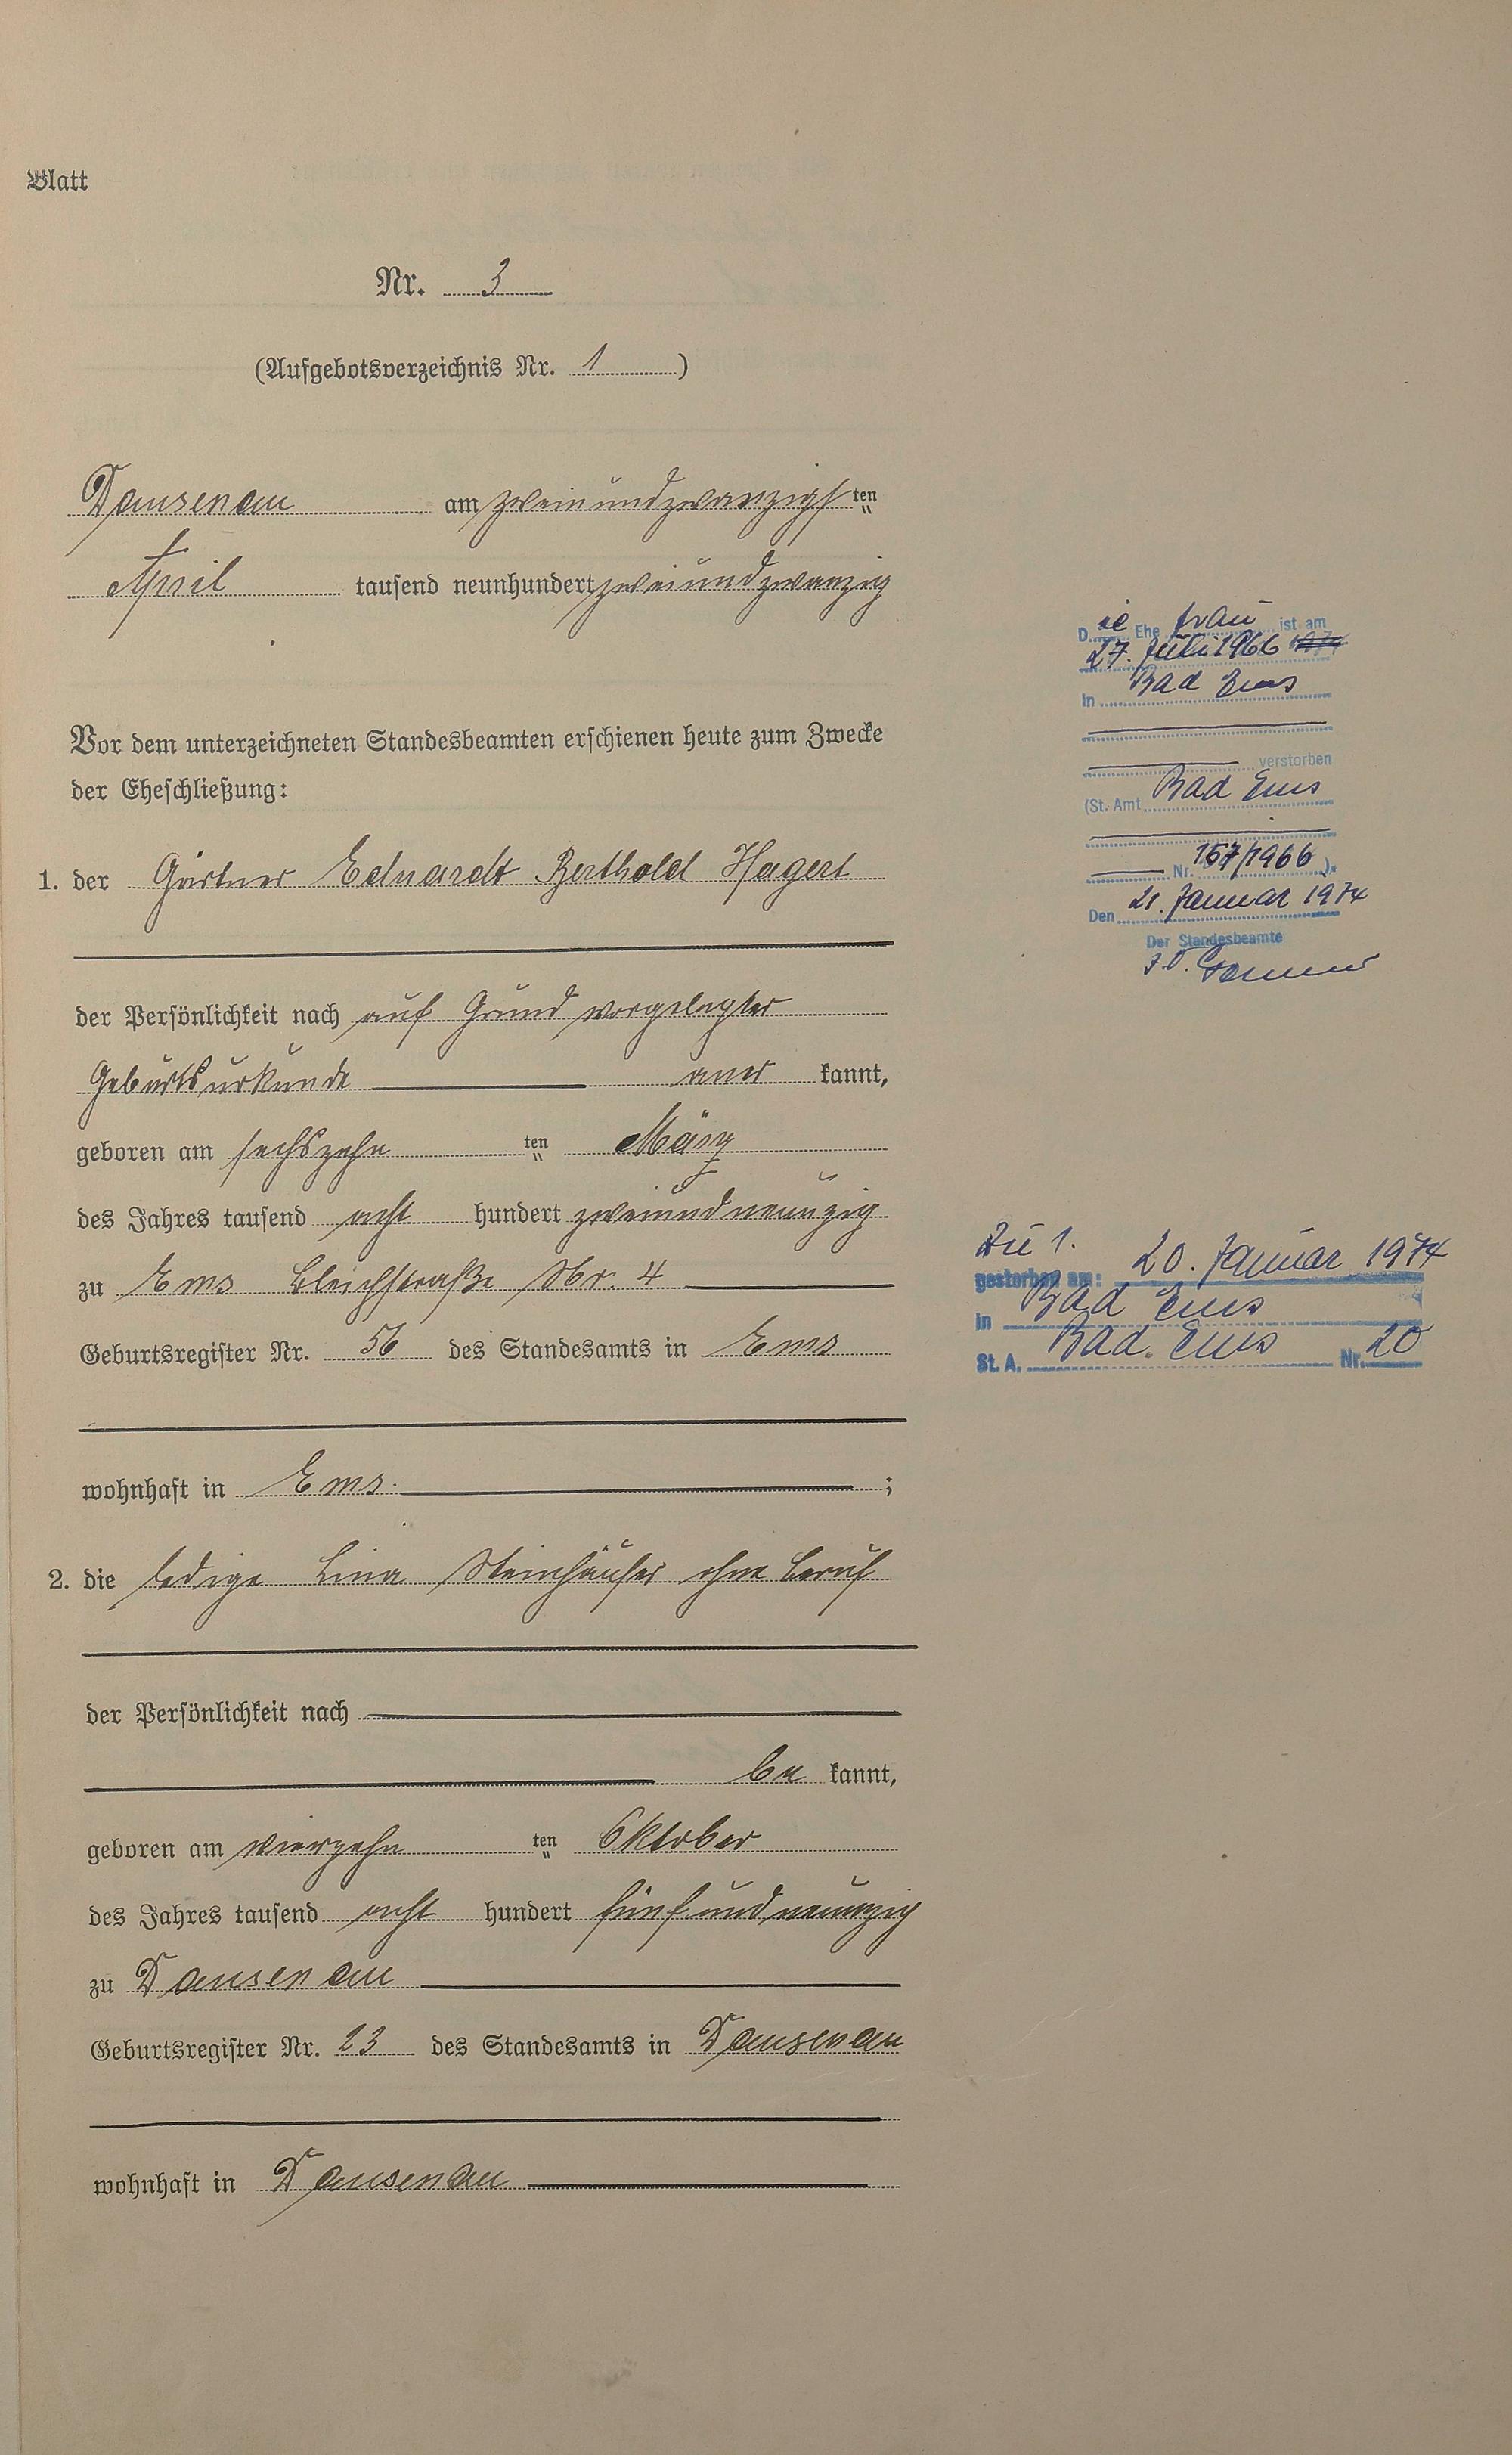 Blatt
Nr. 3
(Aufgebotsverzeichnis Nr. 1)
Dausenau am zweiundzwanzigsten
April tausend neunhundert zweiundzwanzig
Vor dem unterzeichneten Standesbeamten erschienen heute zum Zwecke
der Eheschließung:
1. der Gärtner Eduardt Berthold Hagert
der Persönlichkeit nach auf Grund vorgelegter
Geburtsurkunde aner kannt,
geboren am sechszehn ten März
des Jahres tausend acht hundert zweiundneunzig
zu Ems Bleichstraße Nr. 4
Geburtsregister Nr. 56 des Standesamts in Ems
wohnhaft in Ems ;
2. die ledige Lina Steinhäuser ohne Beruf
der Persönlichkeit nach
be kannt,
geboren am vierzehn ten Oktober
des Jahres tausend acht hundert fünfundneunzig
zu Dausenau
Geburtsregister Nr. 23 des Standesamts in Dausenau
wohnhaft in Dausenau
Die Ehefrau ist am
27. Juli 1966 1974
in Bad Ems
verstorben
(St. Amt Bad Ems
Nr. 157/1966).
Den 21. Januar 1974
Der Standesbeamte
Zu 1.
gestorben am: 20. Januar 1974
in Bad Ems
St. A. Bad Ems Nr. 20